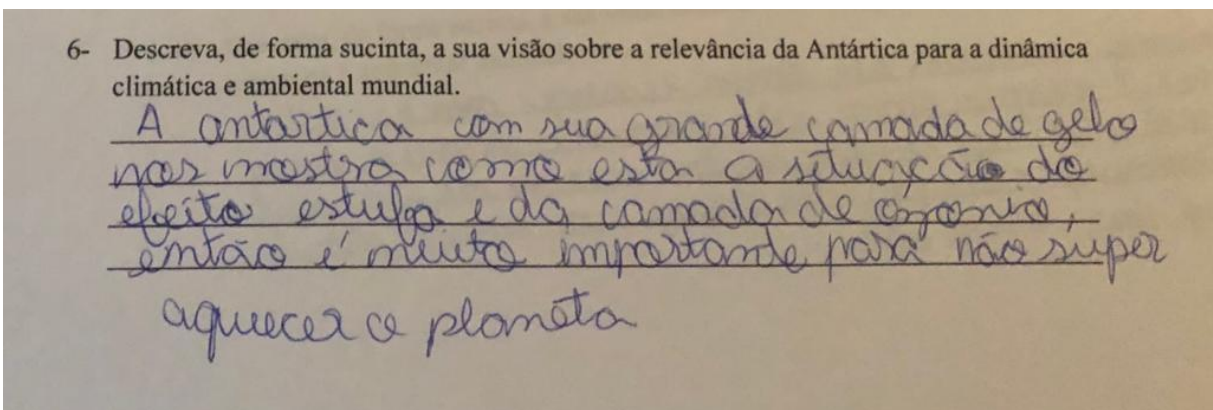 6- Descreva, de forma sucinta, a sua visão sobre a relevância da Antártica para a dinâmica
climática e ambiental mundial.
A antartica com sua grande camada de gelo
nos mostra como esta a situação do
efeito estufa e da camada de ozonio,
então é muito importande para não super
aquecer o planeta